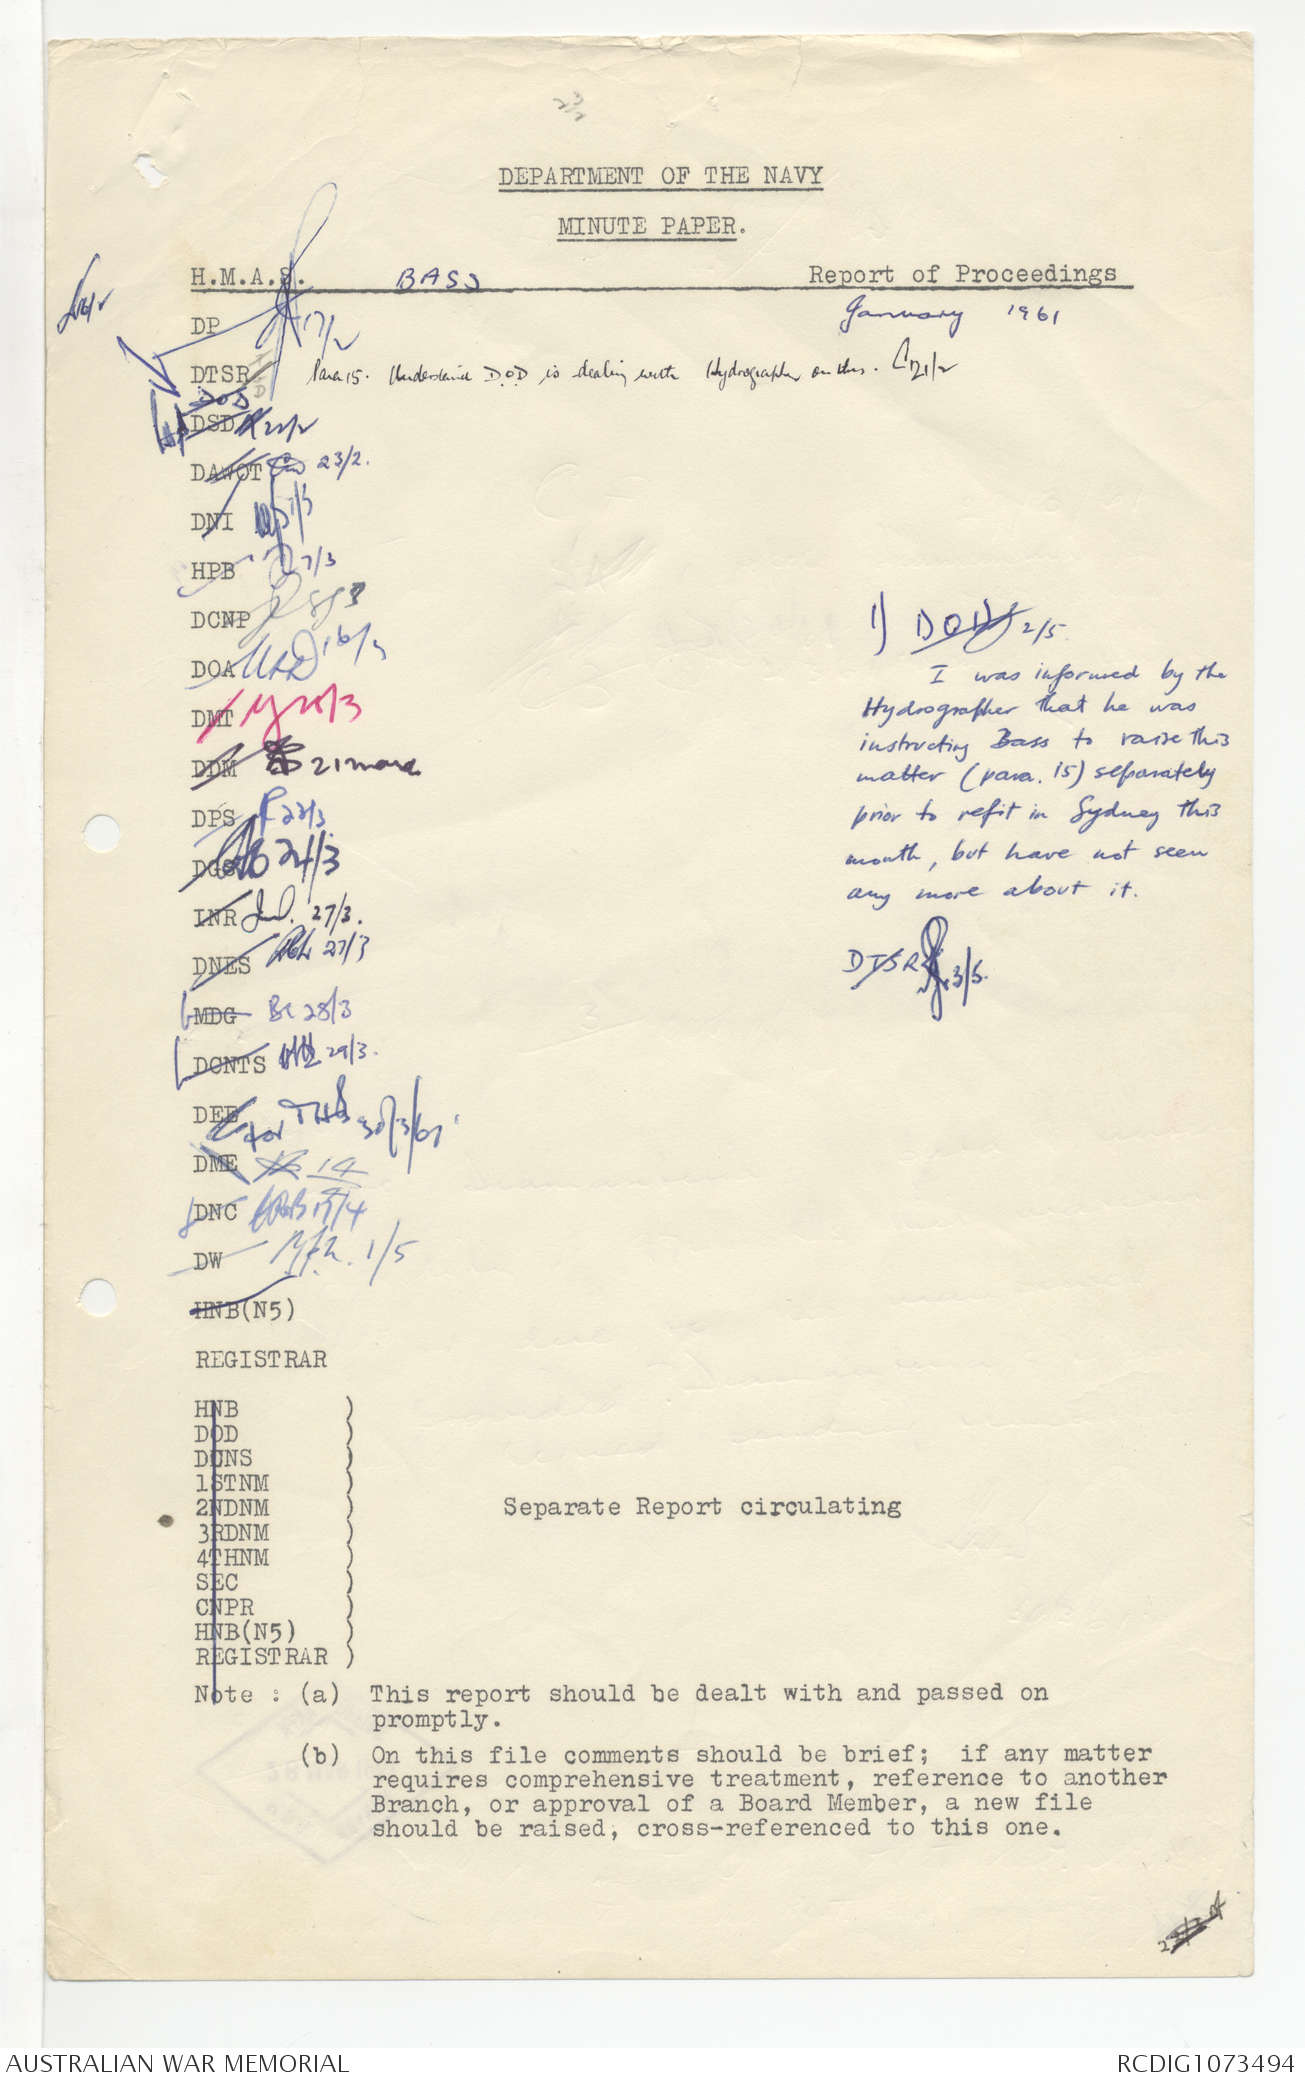 23/2
DEPARTMENT OF THE NAVY
MINUTE PAPER.
H.M.A.S. BASS Report of Proceedings
January 1961
DP 17/2
DTSR Para 15. Understand D.O.D is dealing with Hydrographer on this. 21/2
DOD
DSD 22/2
DAWOT 23/2.
DNI 1/3
HPB 7/3
DCNP 8/3
DOA 16/3
DMT 20/3
DDM 21 march
DPS 22/3
DGS 24/3
INR 27/3.
DNES 27/3
MDG 28/3
DCNTS 29/3.
DEE for 30/3/61
DME
DNC /4
DW 1/5
HNB(N5)
REGISTRAR
1) DOD 2/5
I was informed by the
Hydrographer that he was
instructing Bass to raise this
matter (para. 15) separately
prior to refit in Sydney this
month, but have not seen
any more about it.
DTSR 3/5.
HNB )
DOD )
DCNS )
1STNM )
2NDNM ) Separate Report circulating
3RDNM )
4THNM )
SEC )
CNPR )
HNB(N5) )
REGISTRAR )
Note : (a) This report should be dealt with and passed on
promptly.
(b) On this file comments should be brief; if any matter
requires comprehensive treatment, reference to another
Branch, or approval of a Board Member, a new file
should be raised, cross-referenced to this one.
AUSTRALIAN WAR MEMORIAL
RCDIG1073494